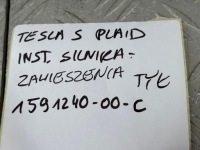 TESLA S PLAID
INST. SILNIKA -
ZAWIESZENIA TYŁ
1591240-00-C